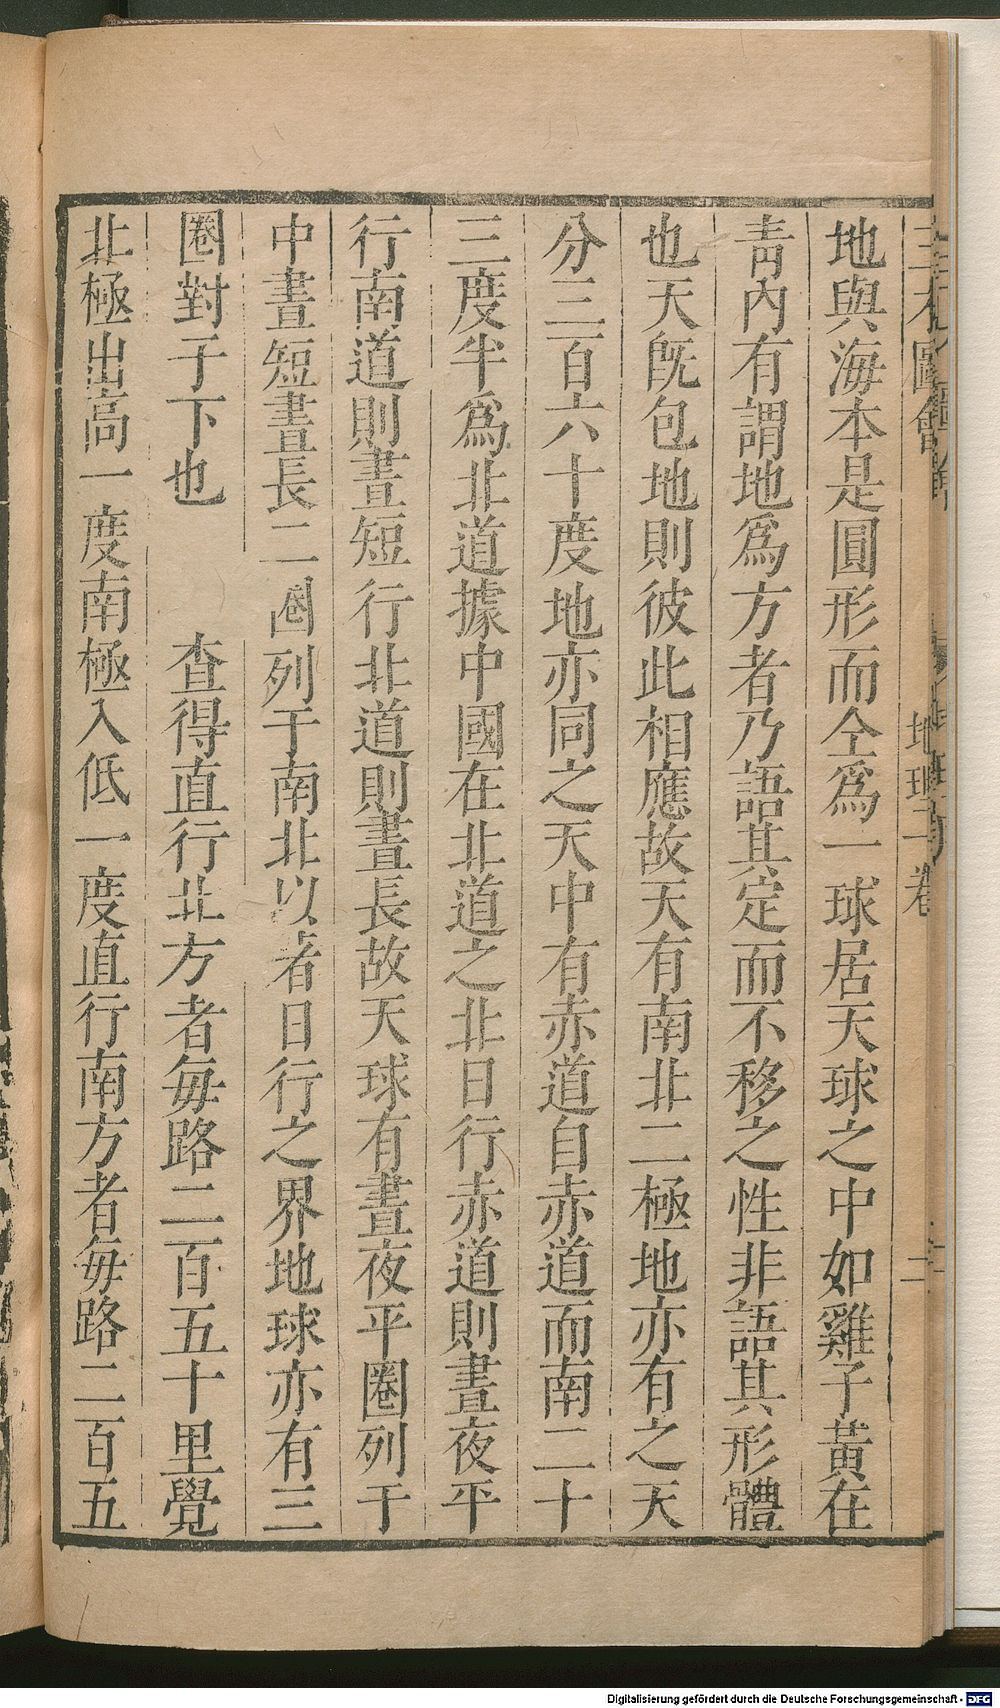 三才圖會
地理一卷
二
地與海本是圓形而仝爲一球居天球之中如雞子黃在
靑內有謂地爲方者乃語其定而不移之性非語其形體
也天旣包地則彼此相應故天有南北二極地亦有之天
分三百六十度地亦同之天中有赤道自赤道而南二十
三度半爲北道據中國在北道之北日行赤道則晝夜平
行南道則晝短行北道則晝長故天球有晝夜平圈列于
中晝短晝長二圈列于南北以著日行之界地球亦有三
圈對于下也　　查得直行北方者每路二百五十里覺
北極出高一度南極入低一度直行南方者每路二百五
Digitalisierung gefördert durch die Deutsche Forschungsgemeinschaft - DFG